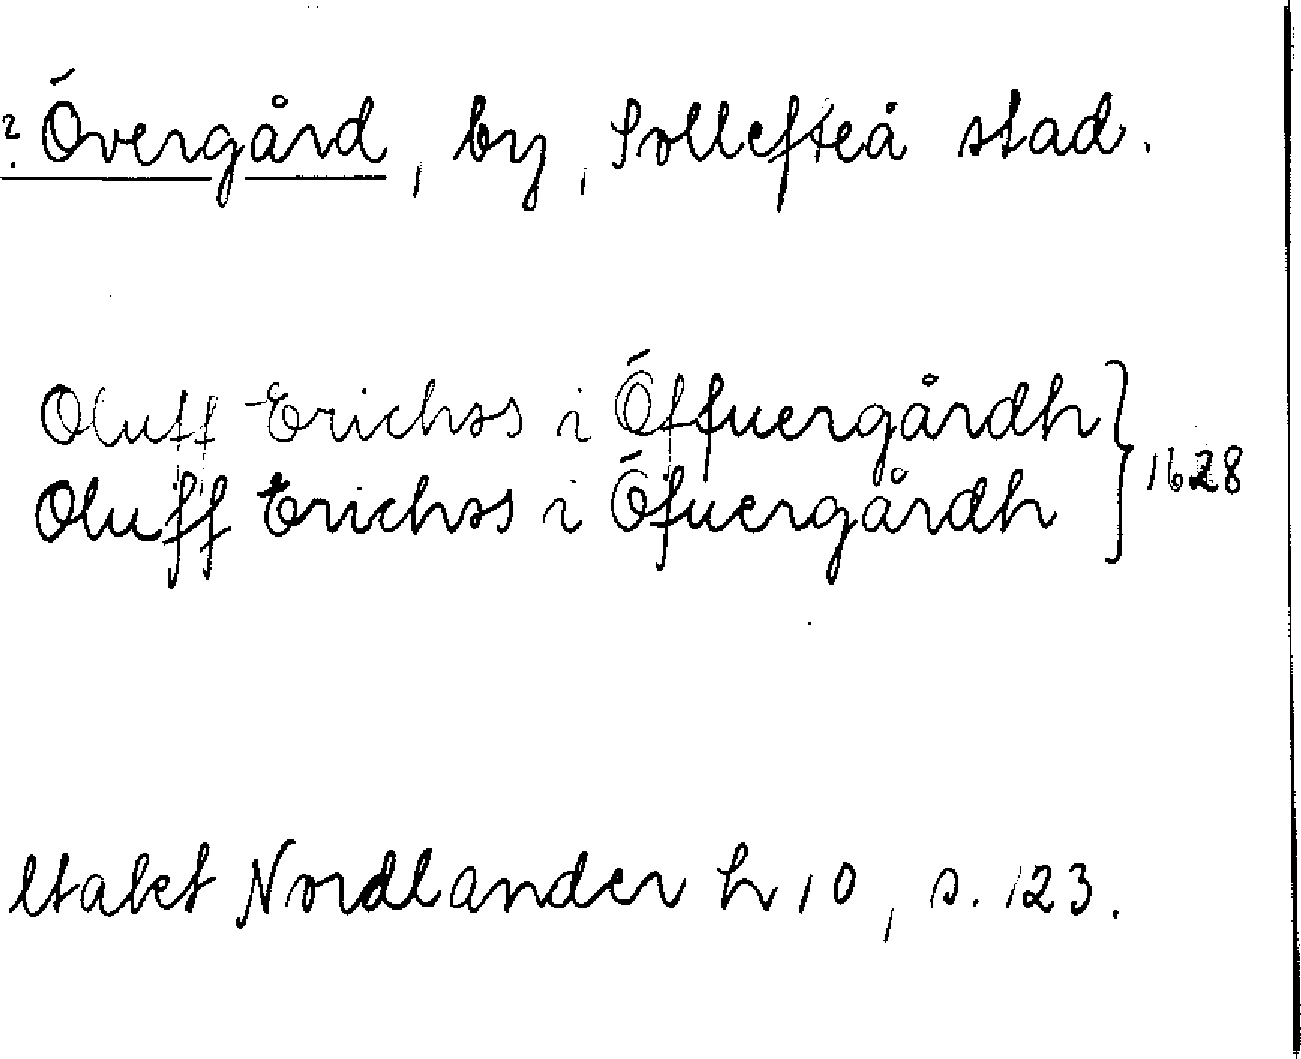 ? Övergård, by, Sollefteå stad.
Oluff Erichss i Öffuergårdh } 1628
Oluff Erichss i Öfuergårdh
Nordlander h 10, s. 123.